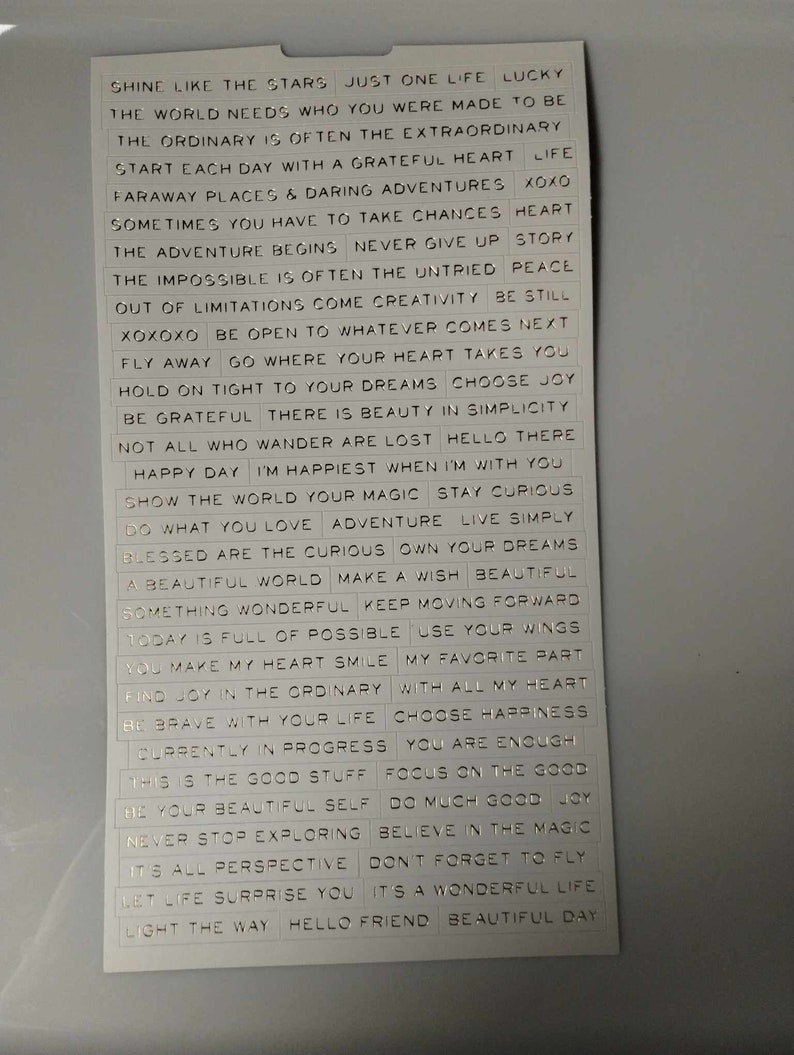 SHINE LIKE THE STARS JUST ONE LIFE LUCKY
THE WORLD NEEDS WHO YOU WERE MADE TO BE
THE ORDINARY IS OFTEN THE EXTRAORDINARY
START EACH DAY WITH A GRATEFUL HEART LIFE
FARAWAY PLACES & DARING ADVENTURES XOXO
SOMETIMES YOU HAVE TO TAKE CHANCES HEART
THE ADVENTURE BEGINS NEVER GIVE UP STORY
THE IMPOSSIBLE IS OFTEN THE UNTRIED PEACE
OUT OF LIMITATIONS COME CREATIVITY BE STILL
XOXOXO BE OPEN TO WHATEVER COMES NEXT
FLY AWAY GO WHERE YOUR HEART TAKES YOU
HOLD ON TIGHT TO YOUR DREAMS CHOOSE JOY
BE GRATEFUL THERE IS BEAUTY IN SIMPLICITY
NOT ALL WHO WANDER ARE LOST HELLO THERE
HAPPY DAY I'M HAPPIEST WHEN I'M WITH YOU
SHOW THE WORLD YOUR MAGIC STAY CURIOUS
DO WHAT YOU LOVE ADVENTURE LIVE SIMPLY
BLESSED ARE THE CURIOUS OWN YOUR DREAMS
A BEAUTIFUL WORLD MAKE A WISH BEAUTIFUL
SOMETHING WONDERFUL KEEP MOVING FORWARD
TODAY IS FULL OF POSSIBLE USE YOUR WINGS
YOU MAKE MY HEART SMILE MY FAVORITE PART
FIND JOY IN THE ORDINARY WITH ALL MY HEART
BE BRAVE WITH YOUR LIFE CHOOSE HAPPINESS
CURRENTLY IN PROGRESS YOU ARE ENOUGH
THIS IS THE GOOD STUFF FOCUS ON THE GOOD
BE YOUR BEAUTIFUL SELF DO MUCH GOOD JOY
NEVER STOP EXPLORING BELIEVE IN THE MAGIC
IT'S ALL PERSPECTIVE DON'T FORGET TO FLY
LET LIFE SURPRISE YOU IT'S A WONDERFUL LIFE
LIGHT THE WAY HELLO FRIEND BEAUTIFUL DAY